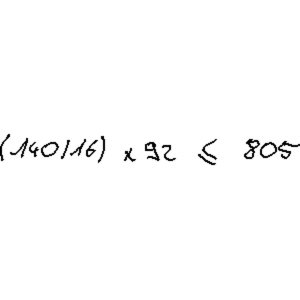 (140/16) x 92 ≤ 805